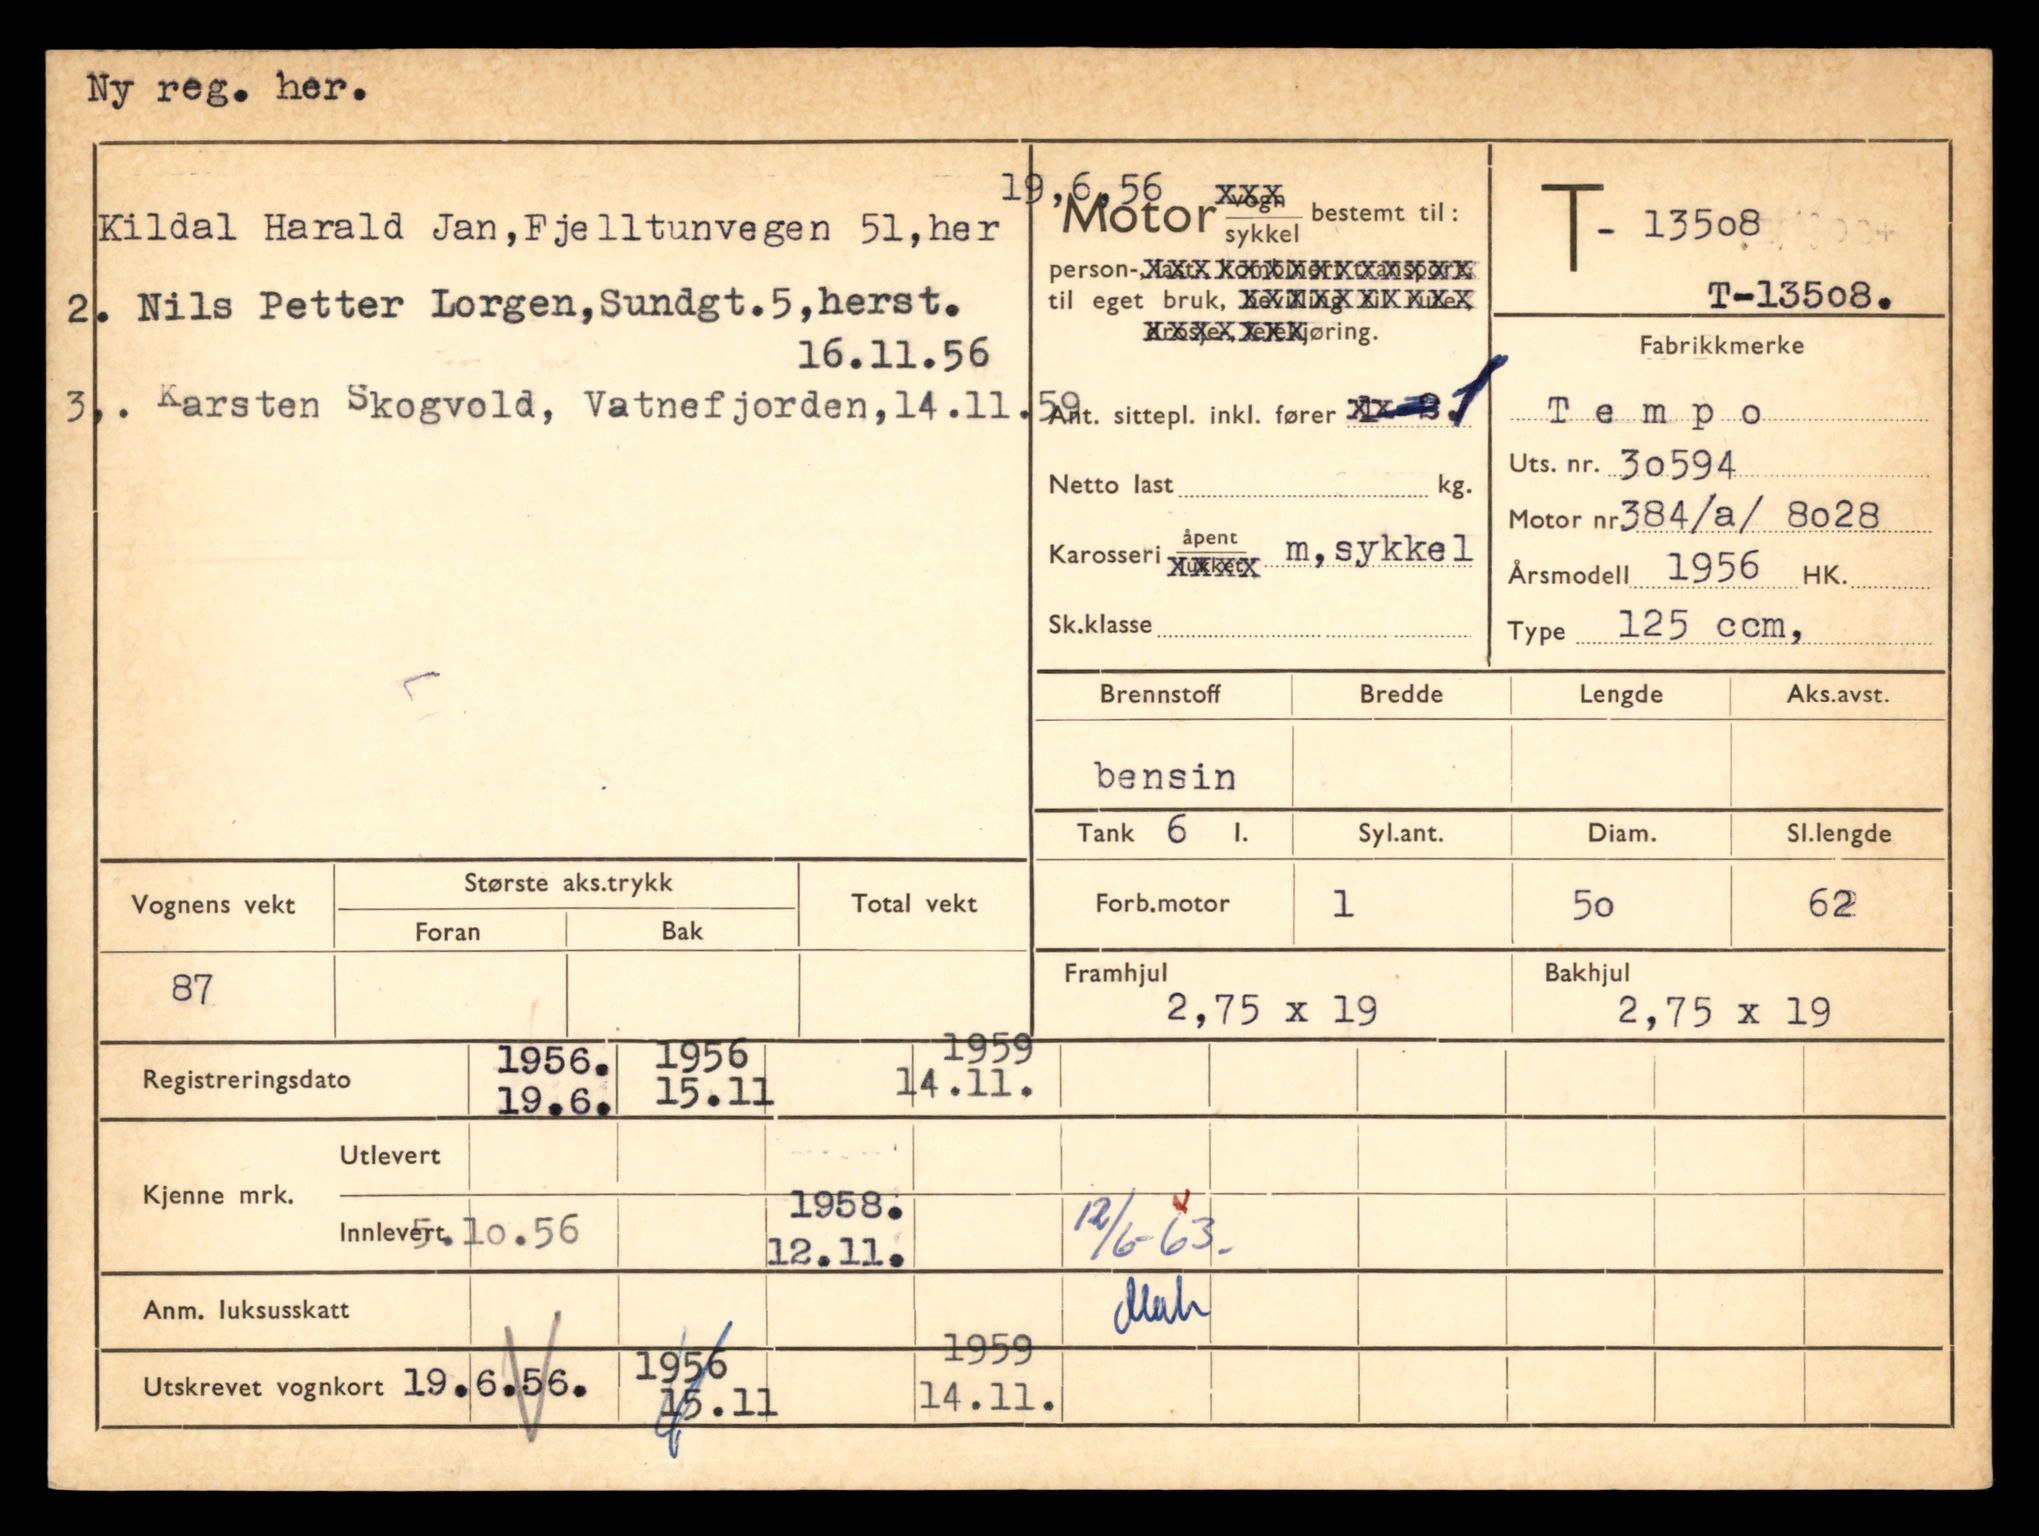 Ny reg. her.
19,6,56
Kildal Harald Jan,Fjelltunvegen 51,her
2. Nils Petter Lorgen,Sundgt.5,herst.
16.11.56
3,. Karsten Skogvold, Vatnefjorden,14.11.59
Motor vogn sykkel bestemt til:
person-, last, kombinert transport
til eget bruk, bevilling til rute,
drosje, leiekjøring.
Ant. sittepl. inkl. fører 1
Netto last kg.
Karosseri åpent lukket m,sykkel
Sk.klasse
T- 13508
T-13508.
Fabrikkmerke
Tempo
Uts. nr. 30594
Motor nr 384/a/ 8028
Årsmodell 1956 HK.
Type 125 ccm,
Brennstoff Bredde Lengde Aks.avst.
bensin
Tank 6 l. Syl.ant. Diam. Sl.lengde
Forb.motor 1 50 62
Framhjul Bakhjul
2,75 x 19 2,75 x 19
Vognens vekt Største aks.trykk Total vekt
Foran Bak
87
Registreringsdato 1956. 19.6. 1956 15.11 1959 14.11.
Kjenne mrk. Utlevert
Innlevert 5.10.56 1958. 12.11. 12/6-63.
Anm. luksusskatt
Utskrevet vognkort 19.6.56. 1956 15.11 1959 14.11.